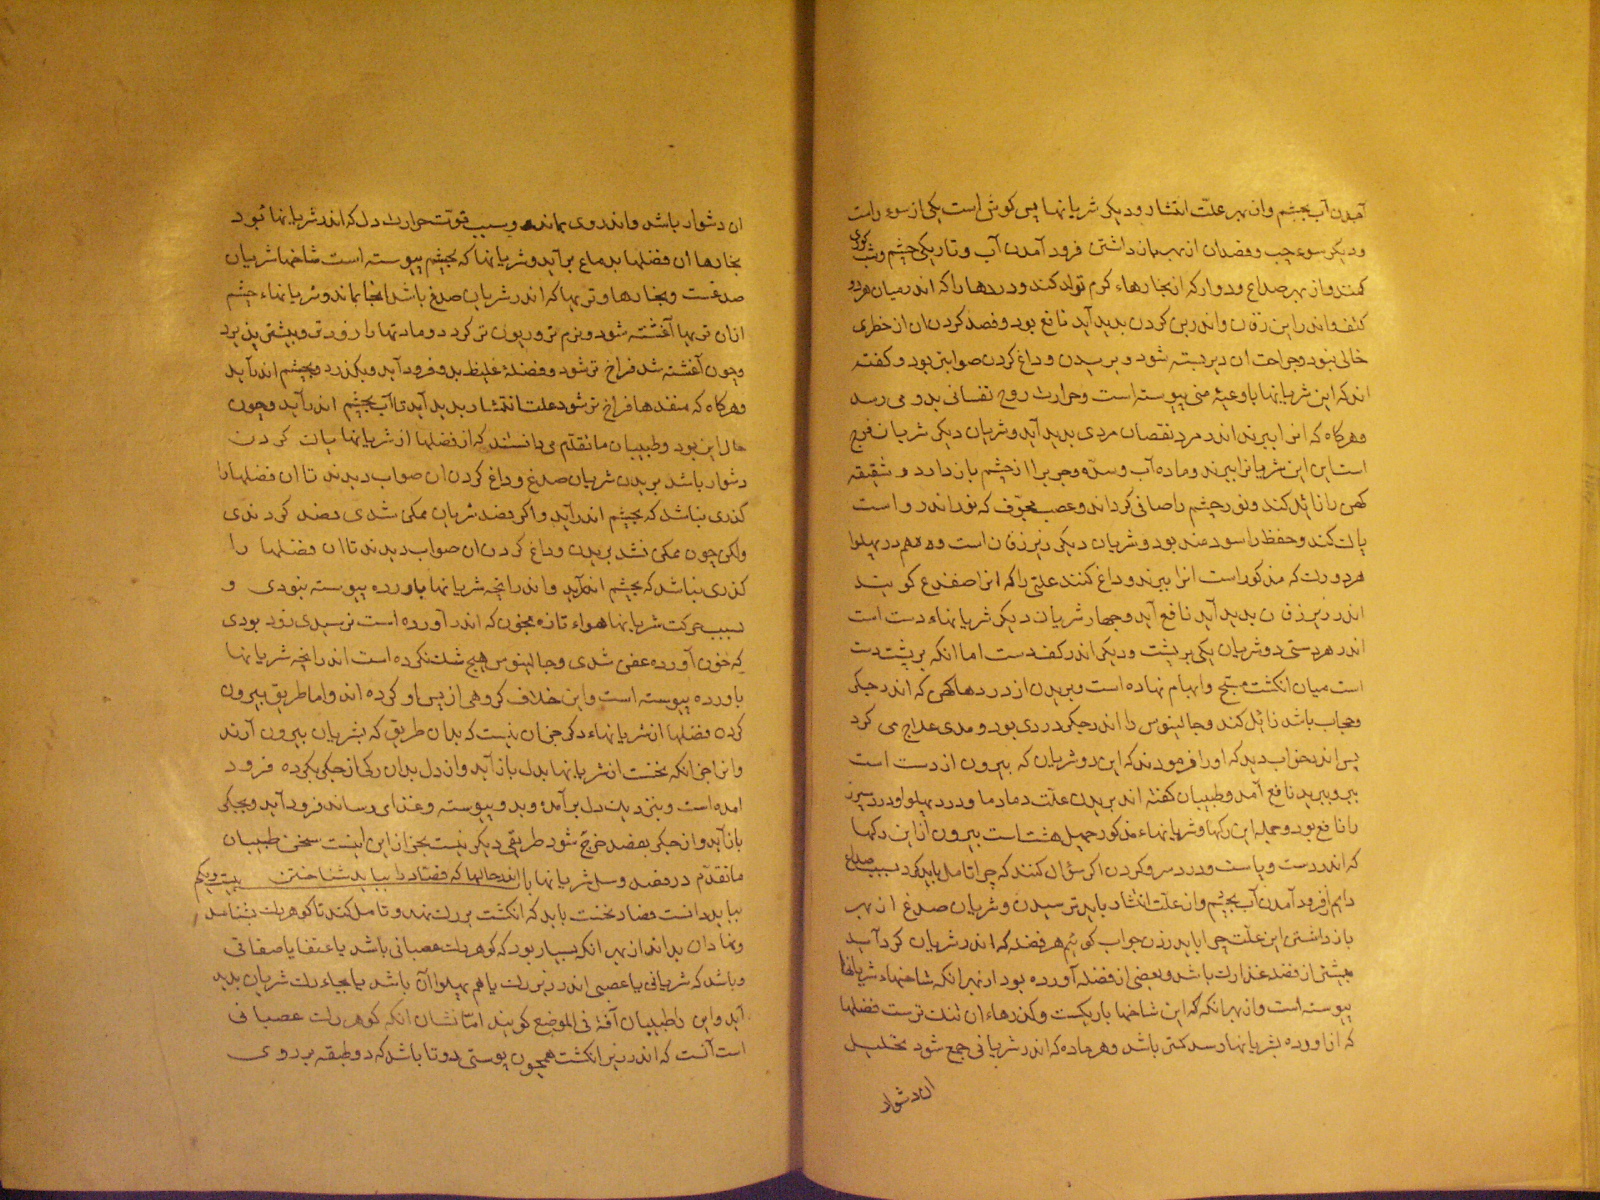 آمدن آب بچشم و از بهر علت انتشار و دیکر شریانها پس کوش است یکی از سوء راست
و دیکر سوء چب و فصد ان از بهر باز داشتن فرود آمدن آب و تاریکی چشم و شب کوری
کنند و از بهر صداع و دوار که از بخارهاء کرم تولد کند و دردها را که اندر میان هر دو
کتف و اندر بن زفان و اندر بن کردن بدید آید نافع بود و فصد کردن ان از خطری
خالی نبود و جراحت ان دیر بسته شود و بریدن و داغ کردن صوابتر بود و کفته
اند که این شریانها با وعیهٔ منی پیوسته است و حرارت روح نفسانی بدو می رسد
و هرکاه که انرا ببرند اندر مرد نقصان مردی بدید آید و شریان دیکر شریان
است این شریانرا ببرند و ماده آب و سدّه و جرب را از چشم باز دارد و شقیقه
کهن را زائل کند و نور چشم را صافی کرداند و عصب مجوّف که نور اندر و است
پاک کند و حفظ را سودمند بود و شریان دیکر زیر زفان است و هم در پهلوا
هر دو رک که مذکور است انرا ببرند و داغ کنند علتی را که انرا ضفدع کویند
اندر زیر زفان بدید آید نافع آید و چهار شریان دیکر شریانهاء دست است
اندر هر دستی دو شریان یکی بر پشت و دیکر اندر کف دست اما انکه بر پشت دست
است میان انکشت مسبّح و ابهام نهاده است و بریدن از دردهاء کهن که اندر جکر
و حجاب باشد زائل کند و جالینوس را اندر جکر دردی بود و مدی علاج می کرد
پس اندر خواب دید که اورا فرمودند که این دو شریان که بیرون از دست است
ببر و ببرید نافع آمد و طبیبان کفته اند بریدن علت دمادما و درد پهلو و درد سپرز
را نافع بود و جمله این رکها و شریانهاء مذکور چهل هشتاست بیرون از این رکها
که اندر دست و پاست و در سر و کردن اکر سؤال کنند که چرا تامل باید کرد بسبب صداع
دایم از فرود آمدن آب بچشم و از علت انتشار باید ترسیدن و شریان صدغ از بهر
باز داشتن این علت چرا باید زدن جواب کوئیم هر فضله که اندر شریان کرد آید
بیشتر از فضله غذا رک باشد و بعضی از فضله آورده بود از بهر انکه شاخها شریانها
پیوسته است و از بهر انکه که این شاخها باریکست و کذرهاء ان تنک ترست فضلها
که از اورده بشریانها رسد کمتر باشد و هر ماده که اندر شریانی جمع شود تحلیل
ان دشوار
ان دشوار باشد و اندر وی بماند و بسبب قوّت حرارت دل که اندر شریانها بود
بخارها ان فضلها بدماغ بر آید و شریانها که بچشم پیوسته است شاخها شریان
صدغست و بخارها و تریها که اندر شریان صدغ باشد انجا بماند و شریانهاء چشم
از ان تریها آغشته شود و نرم تر و زبون تر کردد و مادتها را زودتر و بیشتر پذیرد
و چون آغشته شد فراخ تر شود و فضلهٔ غلیظ بدو فرود آید و بکذرد و بچشم اندر آید
و هرکاه که منفذها فراخ تر شود علت انتشار بدید آید تا آب بچشم اندر آید و چون
حال این بود و طبیبان ما تقدّم می دانستند که از فضلها از شریانها پاک کردن
دشوار باشد بریدن شریان صدغ و داغ کردن ان صواب دیدند تا ان فضلها را
کذری نباشد که بچشم اندر آید و اکر فصد شریان ممکن شدی فصد کردندی
ولکن چون ممکن نشد بریدن و داغ کردن ان صواب دیدند تا ان فضلها را
کذری نباشد که بچشم اندر آید و اندر انچه شریانها باورده پیوسته نبودی و
بسبب حرکت شریانها هواء تازه بخون که اندر آورده است نرسیدی زود بودی
که خون آورده عفن شدی و جالینوس هیچ شک نکرده است اندر انچه شریانها
باورده پیوسته است و این خلاف کروهی از پس او کرده اند و اما طریق بیرون
کرده فضلها از شریانهاء دکر جز ان نیست که بدان طریق که بشریان بیرون آرند
و انرا جز انکه نخست از شریانها بدل باز آید و از دل بدان رک از جکر بکرده فرود
امده است و بنزدیک دل بر آمده و بدو پیوسته و غذای رساند فرود آید و بجکر
باز آید و از جکر بفصد خرج شود طریقی دیکر نیست بجز از این اینست سخن طبیبان
ما تقدّم در فصد و سل شریانها باب بیست و یکم اندر حالها که فصّاد را بباید شناختن
بباید دانست فصاد نخست باید که انکشت بر رک نهد و تامل کند تا کوهر رک بشناسد
و نهاد ان بداند از بهر انکه بسیار بود که کوهر رک عصبانی باشد یا عتقا یا صفاقی
و باشد که شریانی یا عصبی اندر زیر رک یا هم پهلوا آن باشد یا بجاء رک شریان بدید
آید و این را طبیبان آفة فی الموضع کویند امّا نشان انکه کوهر رک عصبانی
است آنست که اندر زیر انکشت همچون پوستی دوتا باشد که دو طبقه بر روی